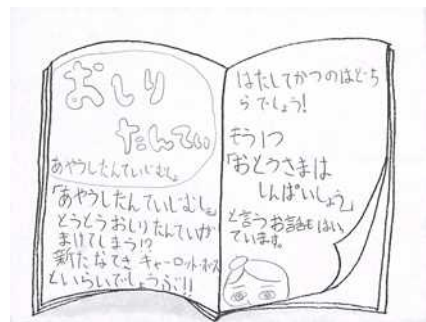 おしり
たんてい
あやうしたんていじむしょ
「あやうしたんていじむしょ」
とうとうおしりたんていが
まけてしまう!?
新たなてき キャーロット・ホームズ
といらいでしょうぶ!!
はたしてかつのはどち
らでしょう!
もう1つ
「おとうさまは
しんぱいしょう」
と言うお話もはいっ
ています。